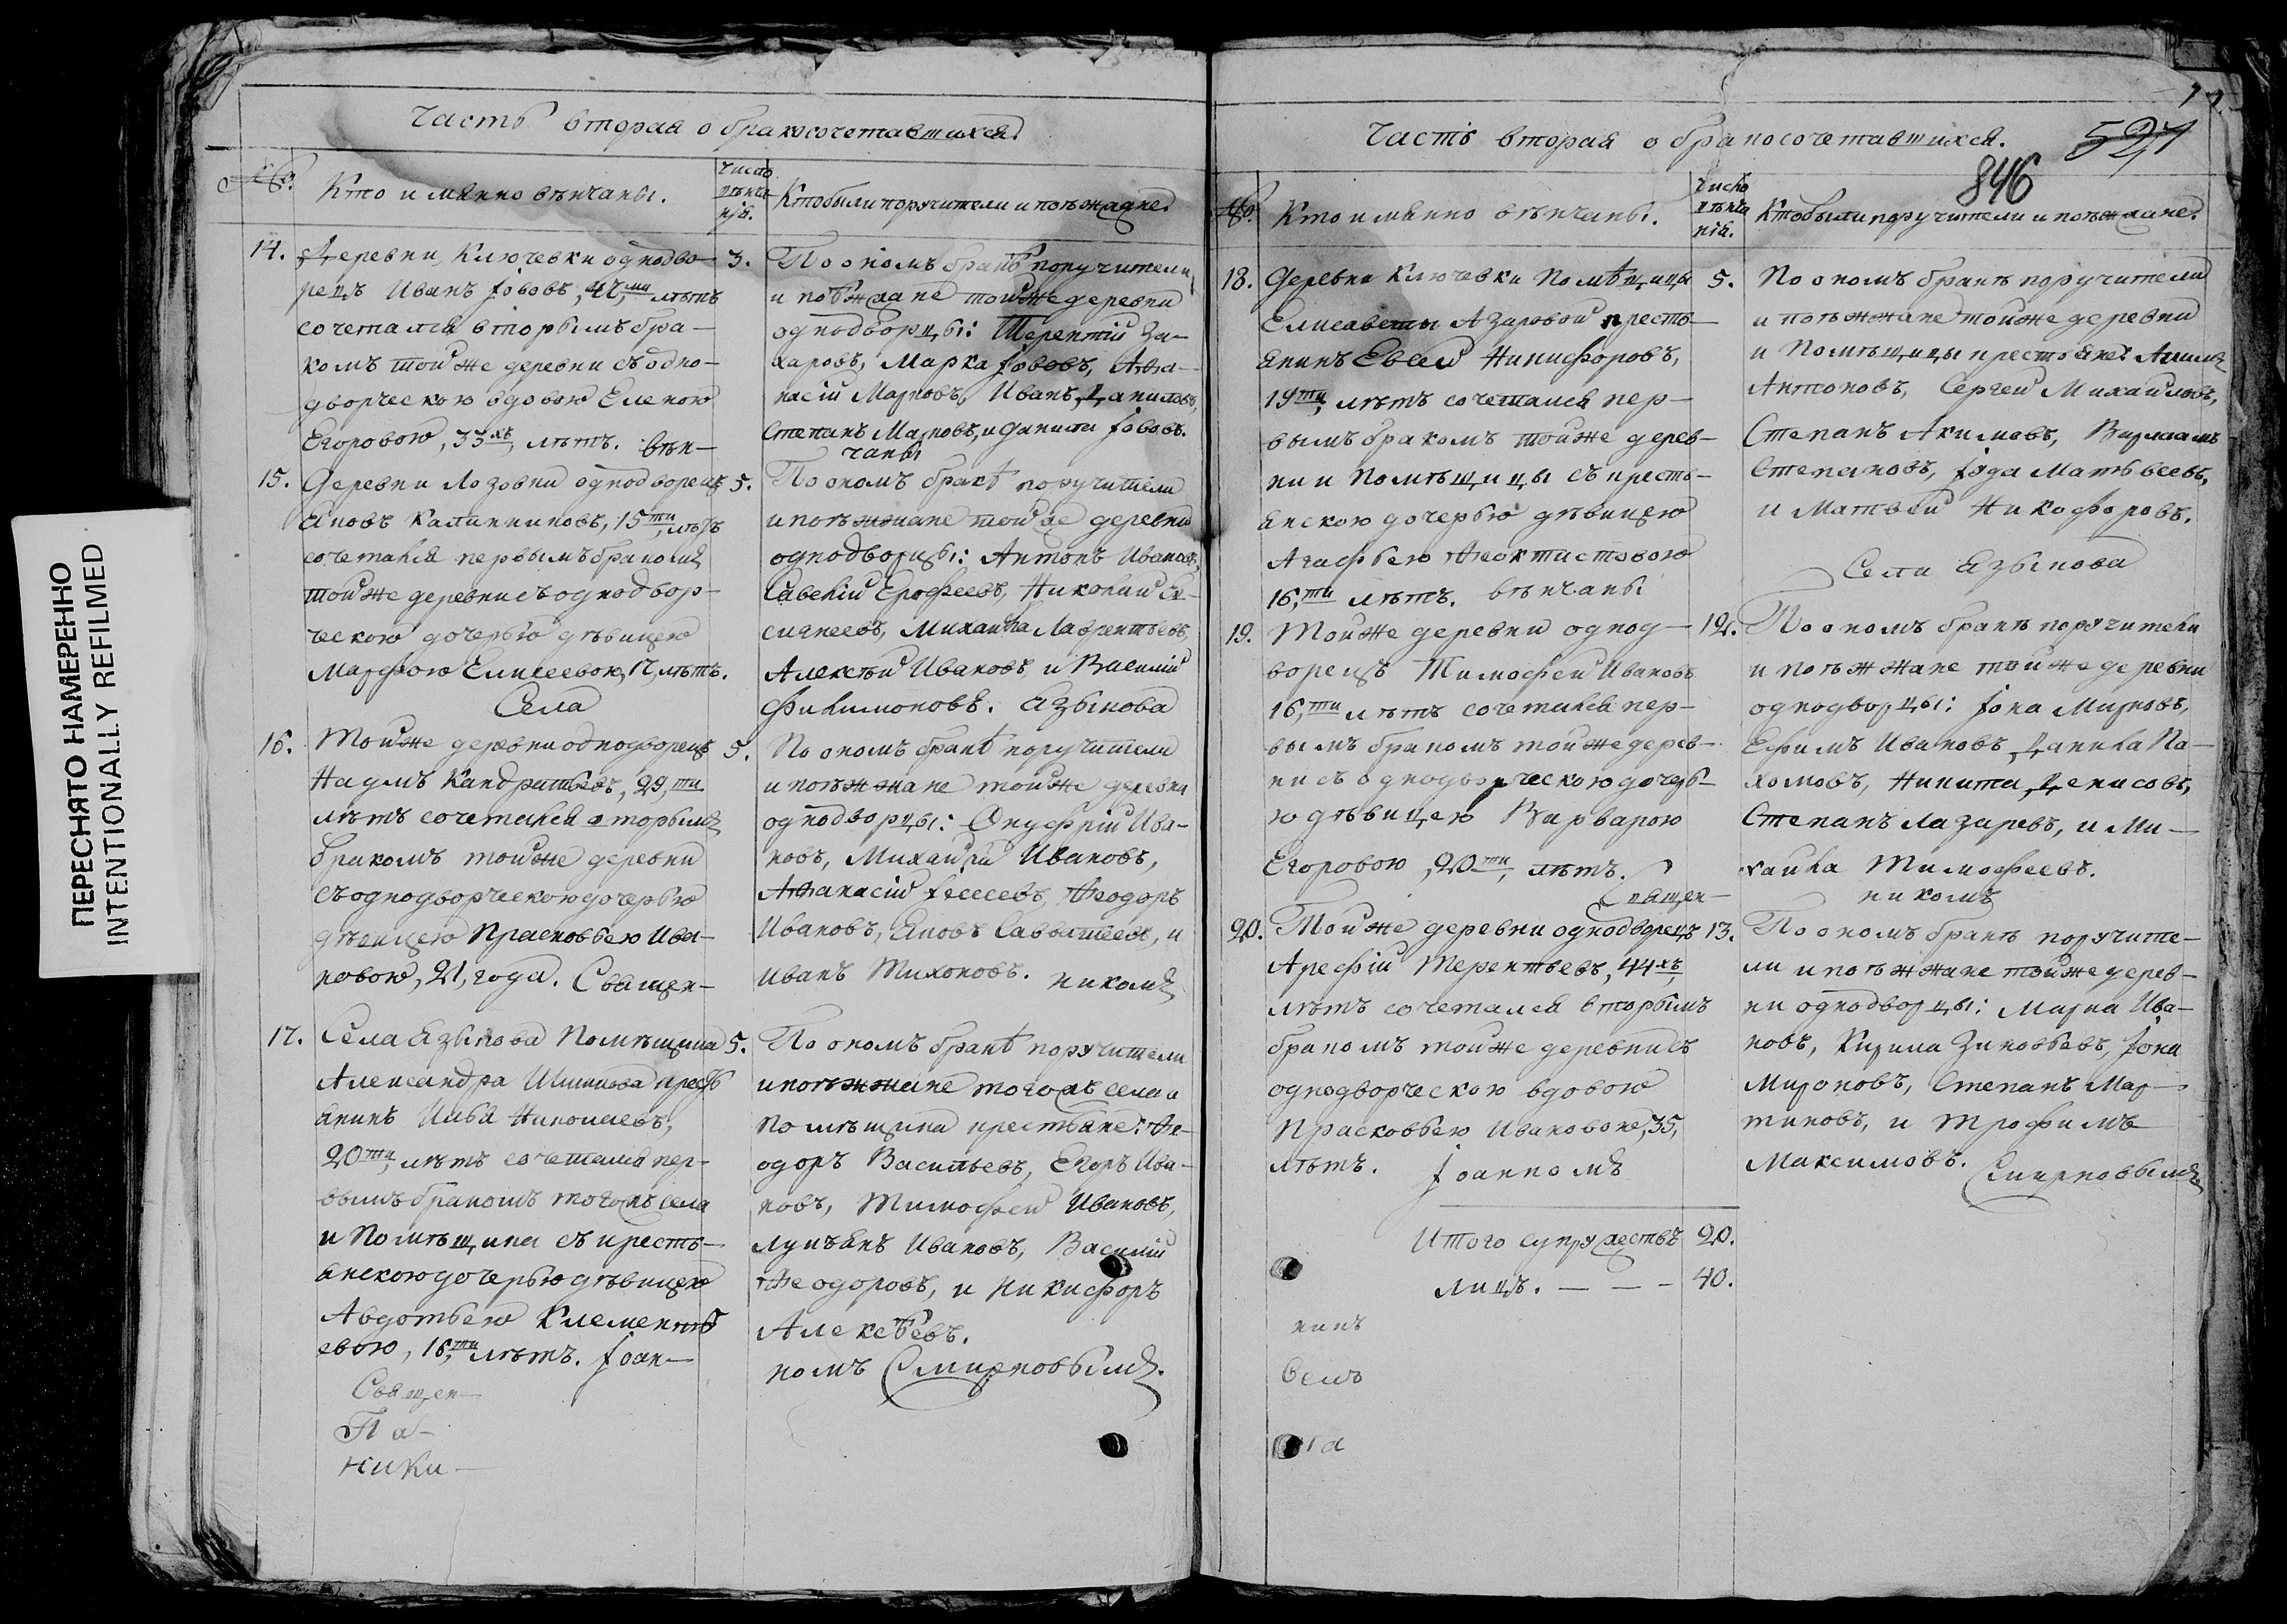 ПЕРЕСНЯТО НАМЕРЕННО
INTENTIONALLY REFILMED
Часть вторая о бракосочетавшихся.
№.
Кто имянно вѣнчаны.
Число вѣнчанія.
Кто были поручители и поѣзжане.
14. Деревни Ключевки однодво-
рецъ Иванъ Іововъ, 47,ми лѣтъ
сочетался вторымъ бра-
комъ той же деревни съ одно-
дворческою вдовою Еленою
Егоровою, 33хъ, лѣтъ. вѣн-
3. По ономъ бракѣ поручители
и поѣжжане той же деревни
однодворцы: Терентій За-
харовъ, Марка Іововъ, Аѳа-
насій Марковъ, Иванъ Даниловъ,
Степанъ Марковъ, и Данила Іововъ.
чаны
15. Деревни Лозовки однодворецъ
Яковъ Калинниковъ, 15ти, лѣтъ
сочетался первымъ бракомъ
той же деревни съ однодвор-
ческою дочерью дѣвицею
Марфою Елисеевою, 17, лѣтъ.
Села
5. По ономъ бракѣ поручители
и поѣжжане той же деревни
однодворцы: Антонъ Ивановъ,
Савелій Ерофеевъ, Николай
Михайла Лаврентьевъ,
Алексѣй Ивановъ, и Василій
Филимоновъ. Языкова
16. Той же деревни однодворецъ
Наумъ Кандратьевъ, 29,ти
лѣтъ сочетался вторымъ
бракомъ той же деревни
съ однодворческою дочерью
дѣвицею Прасковьею Ива-
новою, 21, года. Священ-
5. По ономъ бракѣ поручители
и поѣжжане той же деревни
однодворцы: Онуфрій Ива-
новъ, Михайла Ивановъ,
Аѳанасій Ѳеодоръ
Ивановъ, Яковъ Савватеевъ, и
Иванъ Тихоновъ. никомъ
17. Села Языкова Помѣщика
Александра Шишкова кресть
янинъ Илья Николаевъ,
20ти, лѣтъ сочетался пер-
вымъ бракомъ того жъ села
и Помѣщика съ кресть-
янскою дочерью дѣвицею
Авдотьею Клементь
евою, 16,ти лѣтъ. Іоан-
5. По ономъ бракѣ поручители
и поѣжжане того жъ села и
Помѣщика крестьяне: Ѳе-
одоръ Васильевъ, Егоръ Ива-
новъ, Тимофей Ивановъ,
Лукьянъ Ивановъ, Василій
Ѳеодоровъ, и Никифоръ
Алексѣевъ.
номъ Смирновымъ.
Священ-
Па-
ники-
Часть вторая о бракосочетавшихся.
527
846
№.
Кто имянно вѣнчаны.
Число вѣнчанія.
Кто были поручители и поѣзжане.
18. Деревни Ключевки Помѣщицы
Елисаветы Азаровой кресть-
янинъ Евсей Никифоровъ,
19ти, лѣтъ сочетался пер-
вымъ бракомъ той же дерев-
ни и Помѣщицы съ кресть-
янскою дочерью дѣвицею
Агафьею Ѳеоктистовою
16,ти лѣтъ. вѣнчаны
5. По ономъ бракѣ поручители
и поѣжжане той же деревни
и Помѣщицы крестьяне: Акимъ
Антоновъ, Сергей Михайловъ,
Степанъ Акимовъ, Варлаамъ
Степановъ, Іуда Матвѣевъ,
и Матвей Никофоровъ.
Села Языкова
19. Той же деревни однод-
ворецъ Тимофей Ивановъ
16,ти лѣтъ сочетался пер-
вымъ бракомъ той же дерев-
ни съ однодворческою дочерь-
ю дѣвицею Варварою
Егоровою, 20ти, лѣтъ.
Священ-
12. По ономъ бракѣ поручители
и поѣжжане той же деревни
однодворцы: Іона Марковъ,
Ефимъ Ивановъ, Данила Па-
хомовъ, Никита Денисовъ,
Степанъ Лазаревъ, и Ми-
хайла Тимофеевъ.
никомъ
20. Той же деревни однодворецъ
Арефій Терентьевъ, 44хъ,
лѣтъ сочетался вторымъ
бракомъ той же деревни съ
однодворческою вдовою
Прасковьею Ивановою, 35,
лѣтъ. Іоанномъ
13. По ономъ бракѣ поручите-
ли и поѣжжане той же дерев-
ни однодворцы: Марка Ива-
новъ, Кирила Зиновьевъ, Іона
Мироновъ, Степанъ Мар-
тиновъ, и Трофимъ
Максимовъ. Смирновымъ
Итого супружествъ 20.
лицъ. — — — 40.
нинъ
вемъ
та